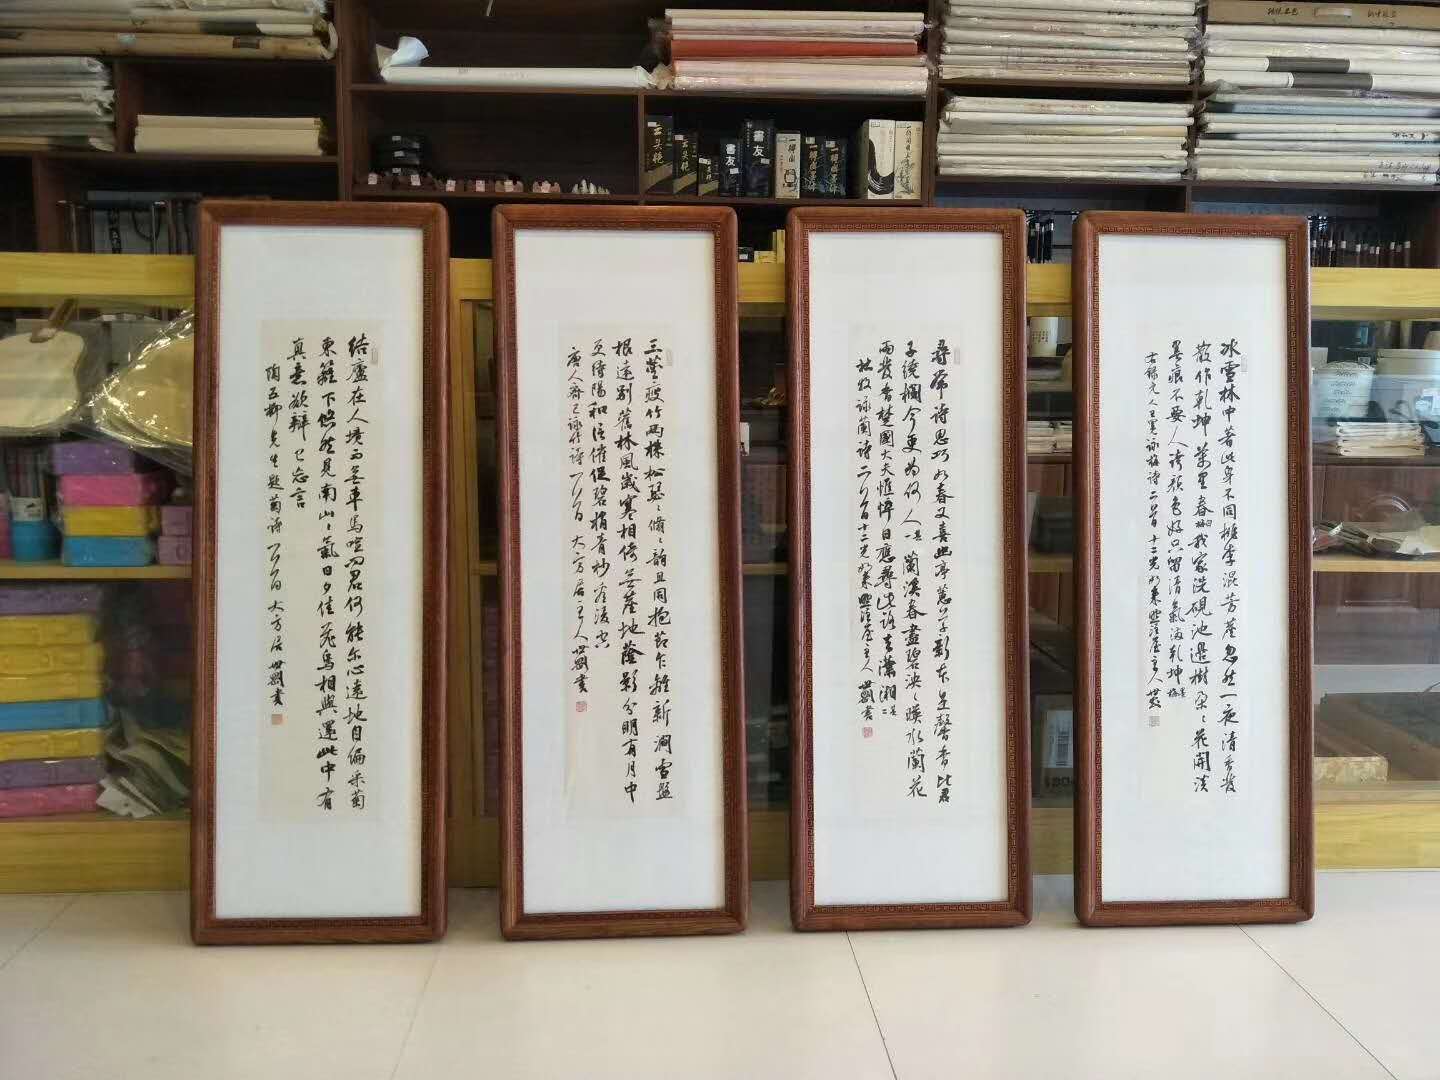 冰雪林中著此身不同桃李混芳塵忽然一夜清香發
散作乾坤萬里春 我家洗硯池邊樹朵〻花開淡
墨痕不要人誇顏色好只留清氣滿乾坤
右錄元人王冕詠梅詩
尋常詩思巧如春又喜幽亭蕙草本是馨香比君
子繞欄今更為何人 其一 蘭溪春盡碧泱〻暎水蘭花
雨發香楚國大夫憔悴日應尋此路去瀟湘 其二
杜牧詠蘭詩
三莖瘦竹兩株松瑟〻翛〻韻且同抱節乍離新澗雪盤
根遠別舊林風歲寒相倚無塵地蔭影分明有月中
更待陽和信催促碧梢青杪看凌空
唐人齊己詠竹詩 大方居主人 書
結廬在人境而無車馬喧問君何能爾心遠地自偏采菊
東籬下悠然見南山〻氣日夕佳飛鳥相與還此中有
真意欲辯已忘言
陶五柳先生題菊詩 大方居 書
云头艳
書友
書友
一得阁